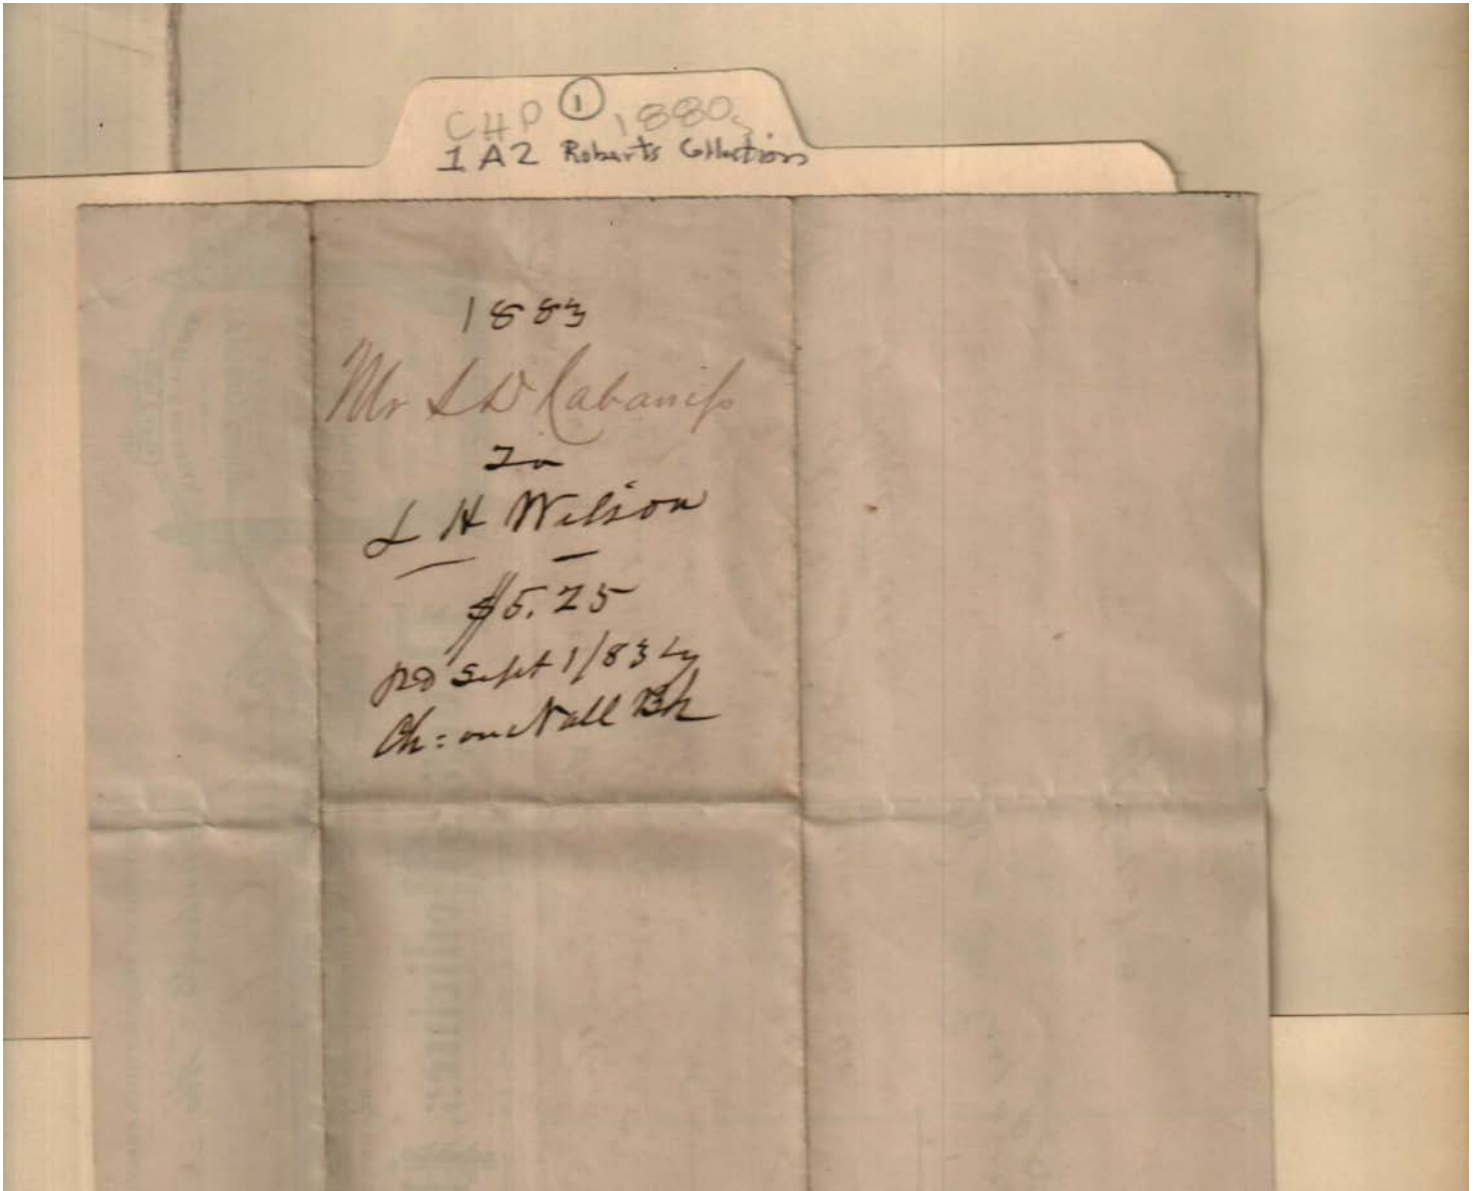 CHP ① 1880s
1A2 Roberts Collection
1883
Mr S D Cabaniss
To
S H Wilson
$5.25
pd Sept 1/83 by
Ch = on Natl Bk